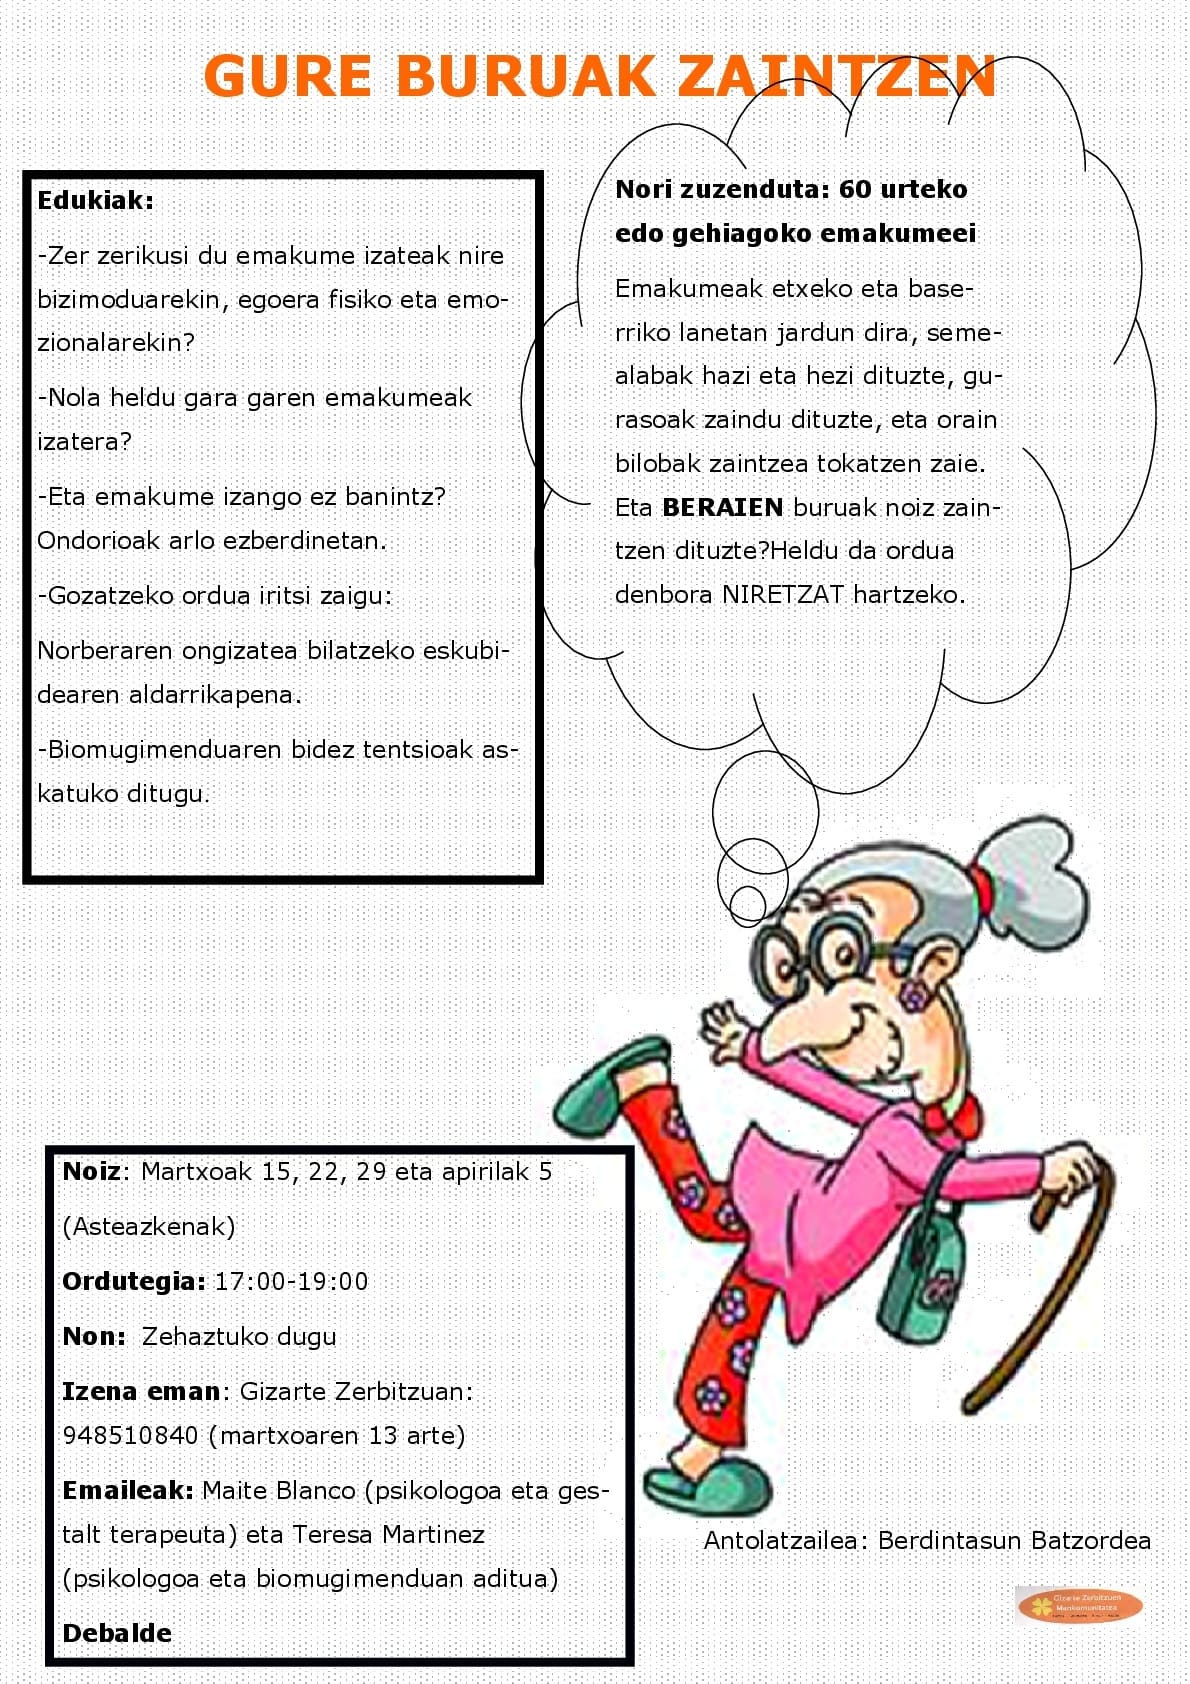 GURE BURUAK ZAINTZEN
Edukiak:
-Zer zerikusi du emakume izateak nire
bizimoduarekin, egoera fisiko eta emo-
zionalarekin?
-Nola heldu gara garen emakumeak
izatera?
-Eta emakume izango ez banintz?
Ondorioak arlo ezberdinetan.
-Gozatzeko ordua iritsi zaigu:
Norberaren ongizatea bilatzeko eskubi-
dearen aldarrikapena.
-Biomugimenduaren bidez tentsioak as-
katuko ditugu.
Nori zuzenduta: 60 urteko
edo gehiagoko emakumeei
Emakumeak etxeko eta base-
rriko lanetan jardun dira, seme-
alabak hazi eta hezi dituzte, gu-
rasoak zaindu dituzte, eta orain
bilobak zaintzea tokatzen zaie.
Eta BERAIEN buruak noiz zain-
tzen dituzte?Heldu da ordua
denbora NIRETZAT hartzeko.
Noiz: Martxoak 15, 22, 29 eta apirilak 5
(Asteazkenak)
Ordutegia: 17:00-19:00
Non: Zehaztuko dugu
Izena eman: Gizarte Zerbitzuan:
948510840 (martxoaren 13 arte)
Emaileak: Maite Blanco (psikologoa eta ges-
talt terapeuta) eta Teresa Martinez
(psikologoa eta biomugimenduan aditua)
Debalde
Antolatzailea: Berdintasun Batzordea
Gizarte Zerbitzuen
Mankomunitatea